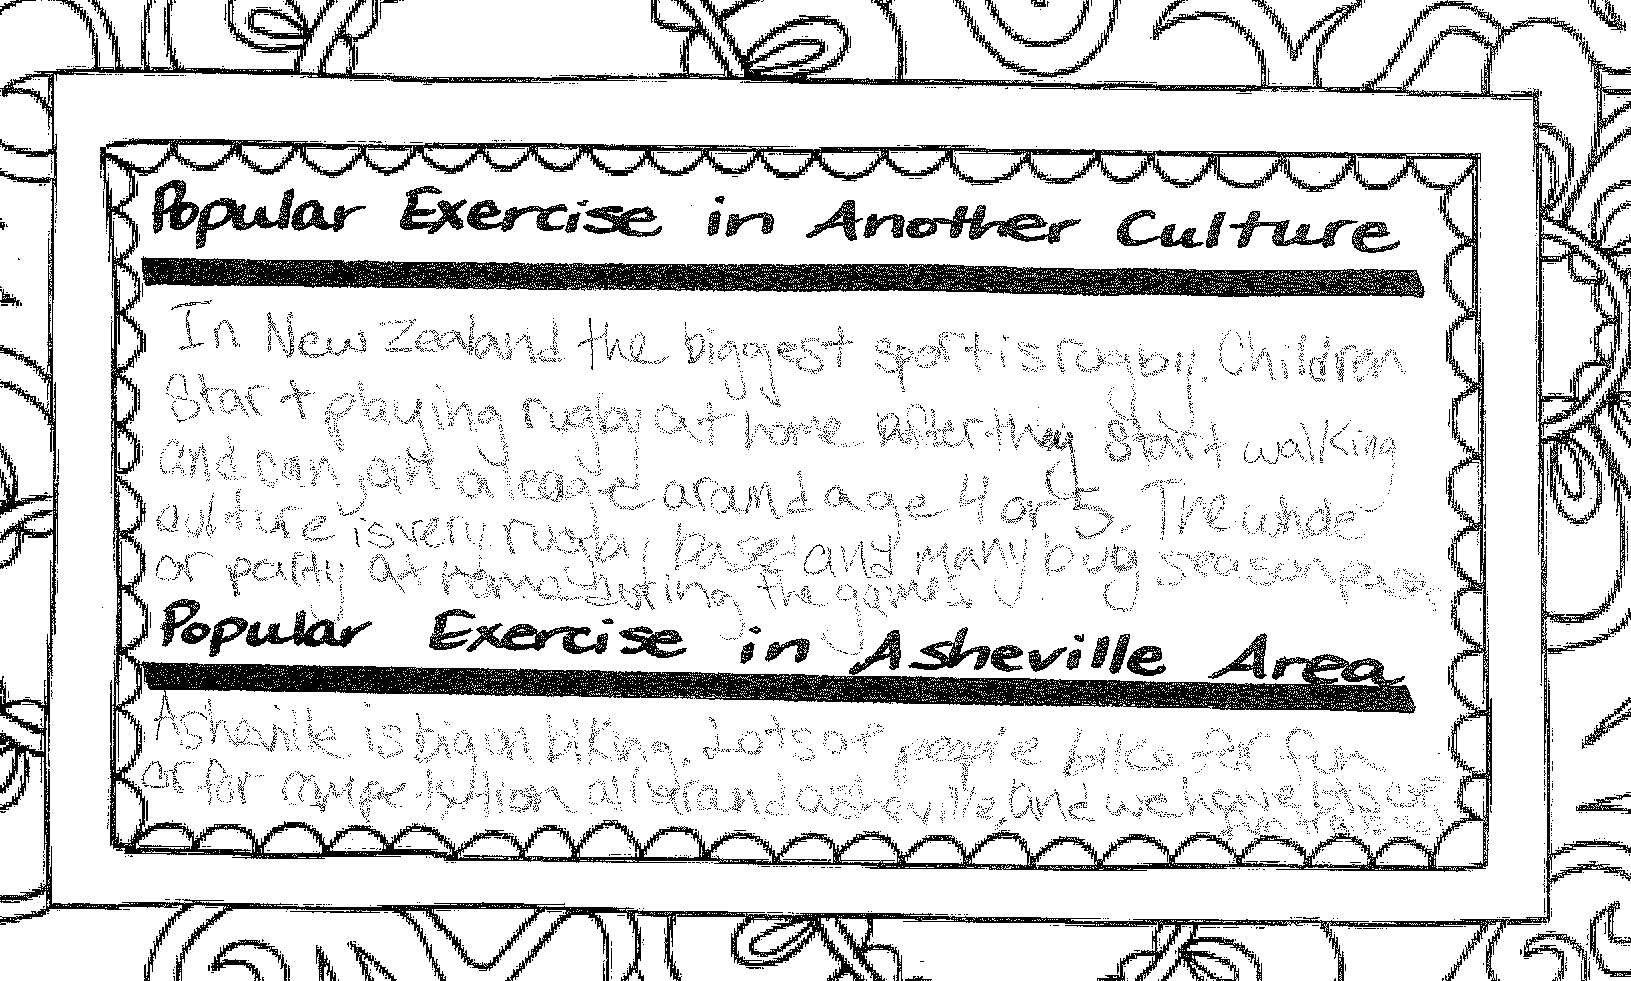 Popular Exercise in Another Culture
In New Zealand the biggest sport is rugby. Children
Start playing rugby at home after they start walking
and can join a leage around age 4 or 5. The whole
culture is very rugby base and many bug season
or party at home during the games.
Popular Exercise in Asheville Area
Asheville is big on biking. Lots of people bike for fun
or for competition all around asheville, and we have lots of